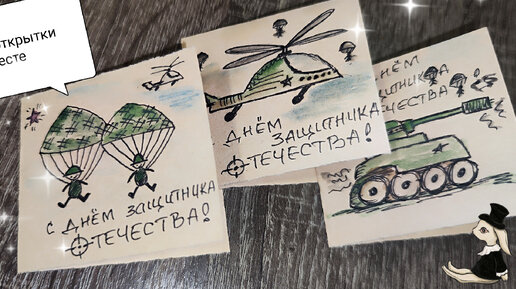 открытки
есте
С ДНЁМ ЗАЩИТНИКА
ОТЕЧЕСТВА!
С ДНЁМ ЗАЩИТНИКА
ОТЕЧЕСТВА!
ДНЁМ